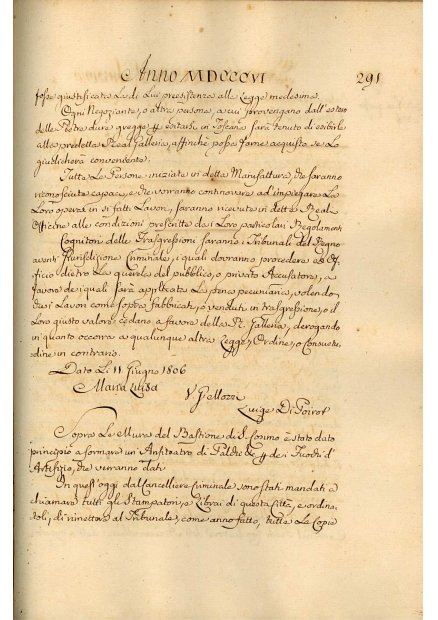 Anno MDCCCVI 291
fosse giustificata la di lui preesistenza alla Legge medesima.
Ogni Negoziante, o altra persona, a cui provengano dall'estero
delle Pietre dure gregge p esitarsi in Toscana sarà tenuto di esibirle
alla predetta Real Galleria, affinché possa farne acquisto se lo
giudicherà conveniente.
Tutte le Persone iniziate in detta Manifattura, che saranno
riconosciute capaci, e che vorranno continovare ad impiegare la
Loro opera in sì fatti Lavori, saranno ricevute in dette Reali
Officine alle condizioni prescritte dai Loro particolari Regolamenti
Cognitori delle Trasgressioni saranno i Tribunali del Regno
aventi Giurisdizione Criminale, i quali dovranno procedere ex Of-
ficio dietro la querela del pubblico, o privato Accusatore, a
favore de i quali sarà applicata la pena pecuniaria, volendo
che i Lavori come sopra fabbricati, o venduti in trasgressione, o il
Loro giusto valore cedano a favore della R. Galleria, derogando
in quanto occorra a qualunque altra Legge, Ordine, o Consuetu-
dine in contrario.
Dato Li 11 Giugno 1806
Maria Luisa
V. Gellozzi
Luigi Di Poirot
Sopra le Mura del Bastione di S. Cosimo è stato dato
principio a formare un Anfiteatro di Palchi p de i Fuochi d'
Artifizio, che verranno dati
In quest'oggi dal Cancelliere Criminale sono stati mandati a
chiamare tutti gli Stampatori, e Librai di questa Città, e ordina-
toli, di rimettere al Tribunale, come anno fatto, tutte le Copie